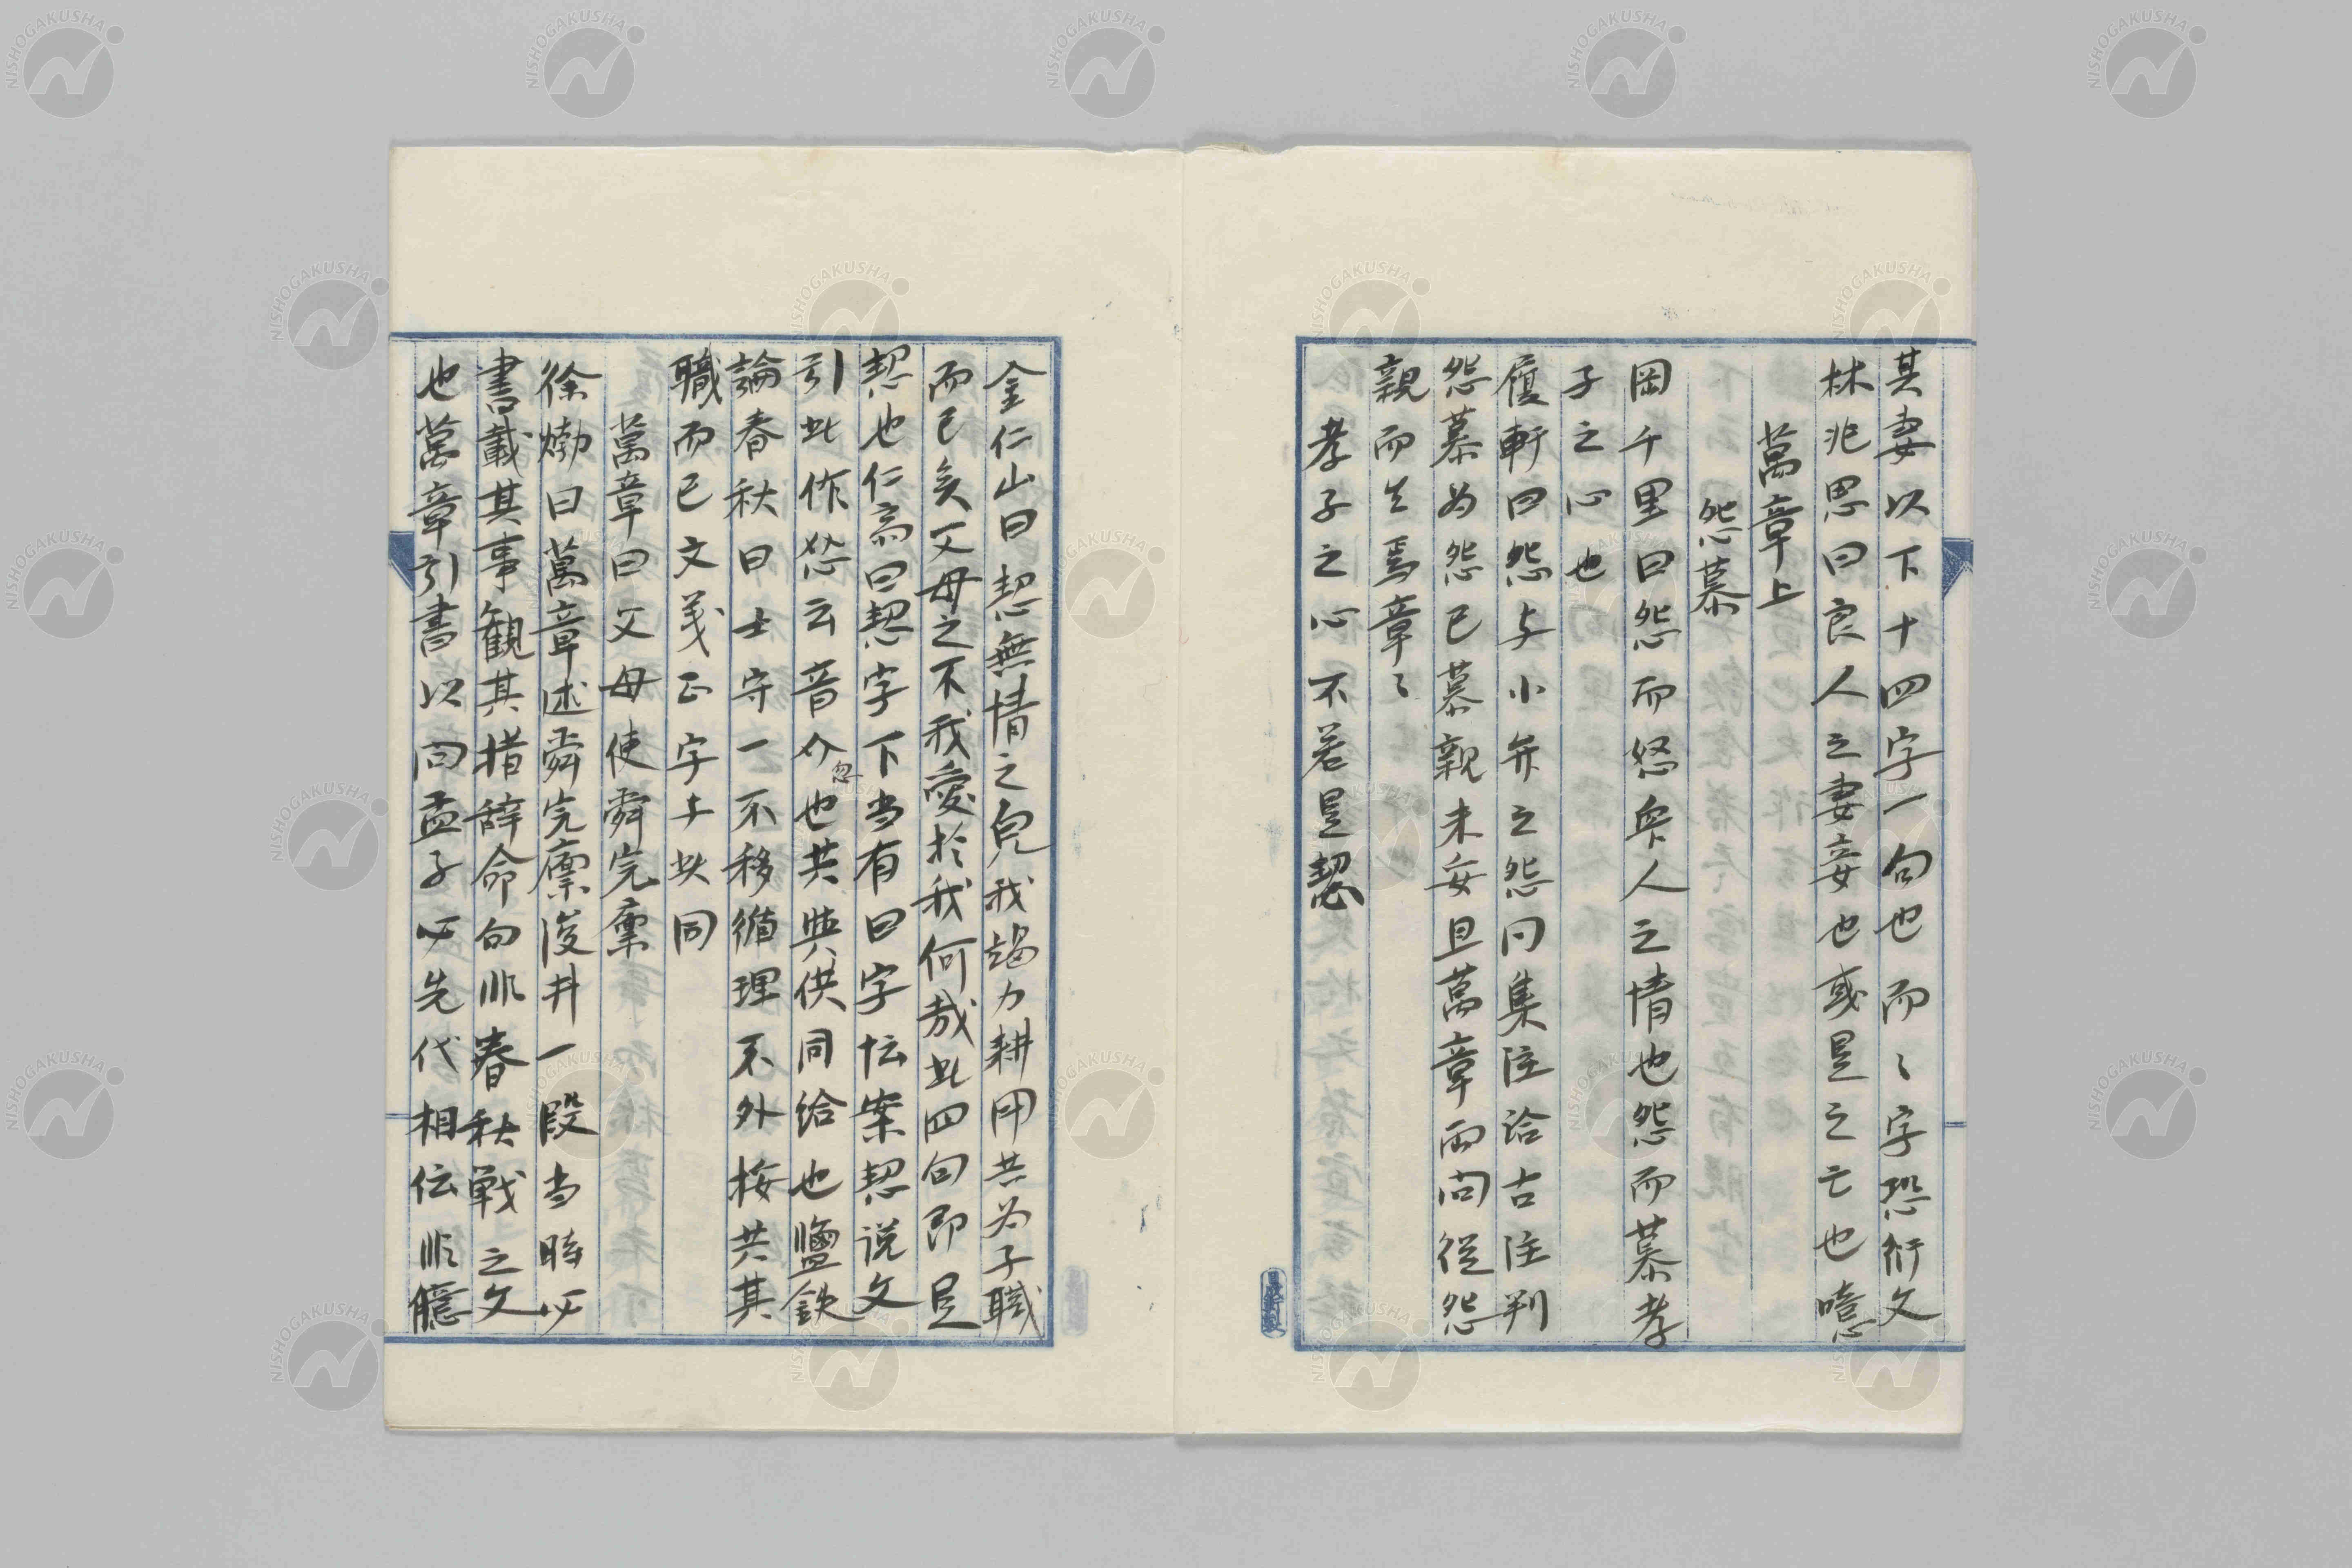 其妻以下十四字一句也而〻字恐衍文
林兆思曰良人之妻妾也或是之亡也噫
萬章上
怨慕
岡千里曰怨而怒舁人之情也怨而慕孝
子之心也
履軒曰怨与小弁之怨同集注诒古注判
怨慕为怨己慕親未妥且萬章両问從怨
親而生焉章〻
孝子之心不若是恝
金仁山曰恝無情之皃我竭力耕田共为子職
而已矣父母之不我愛於我何哉此四句即是
恝也仁斎曰恝字下当有曰字忶案恝说文
引此作忿云音介忽也共與供同给也鹽鉄
論春秋曰士守一不移循理不外援共其
職而已文義正字与此同
萬章曰父母使舜完廩
徐㷆曰萬章述舜完廩浚井一段当時必
書載其事観其措辞命句非春秋戦之文
也萬章引書以问孟子必先代相伝非臆
NISHOGAKUSHA